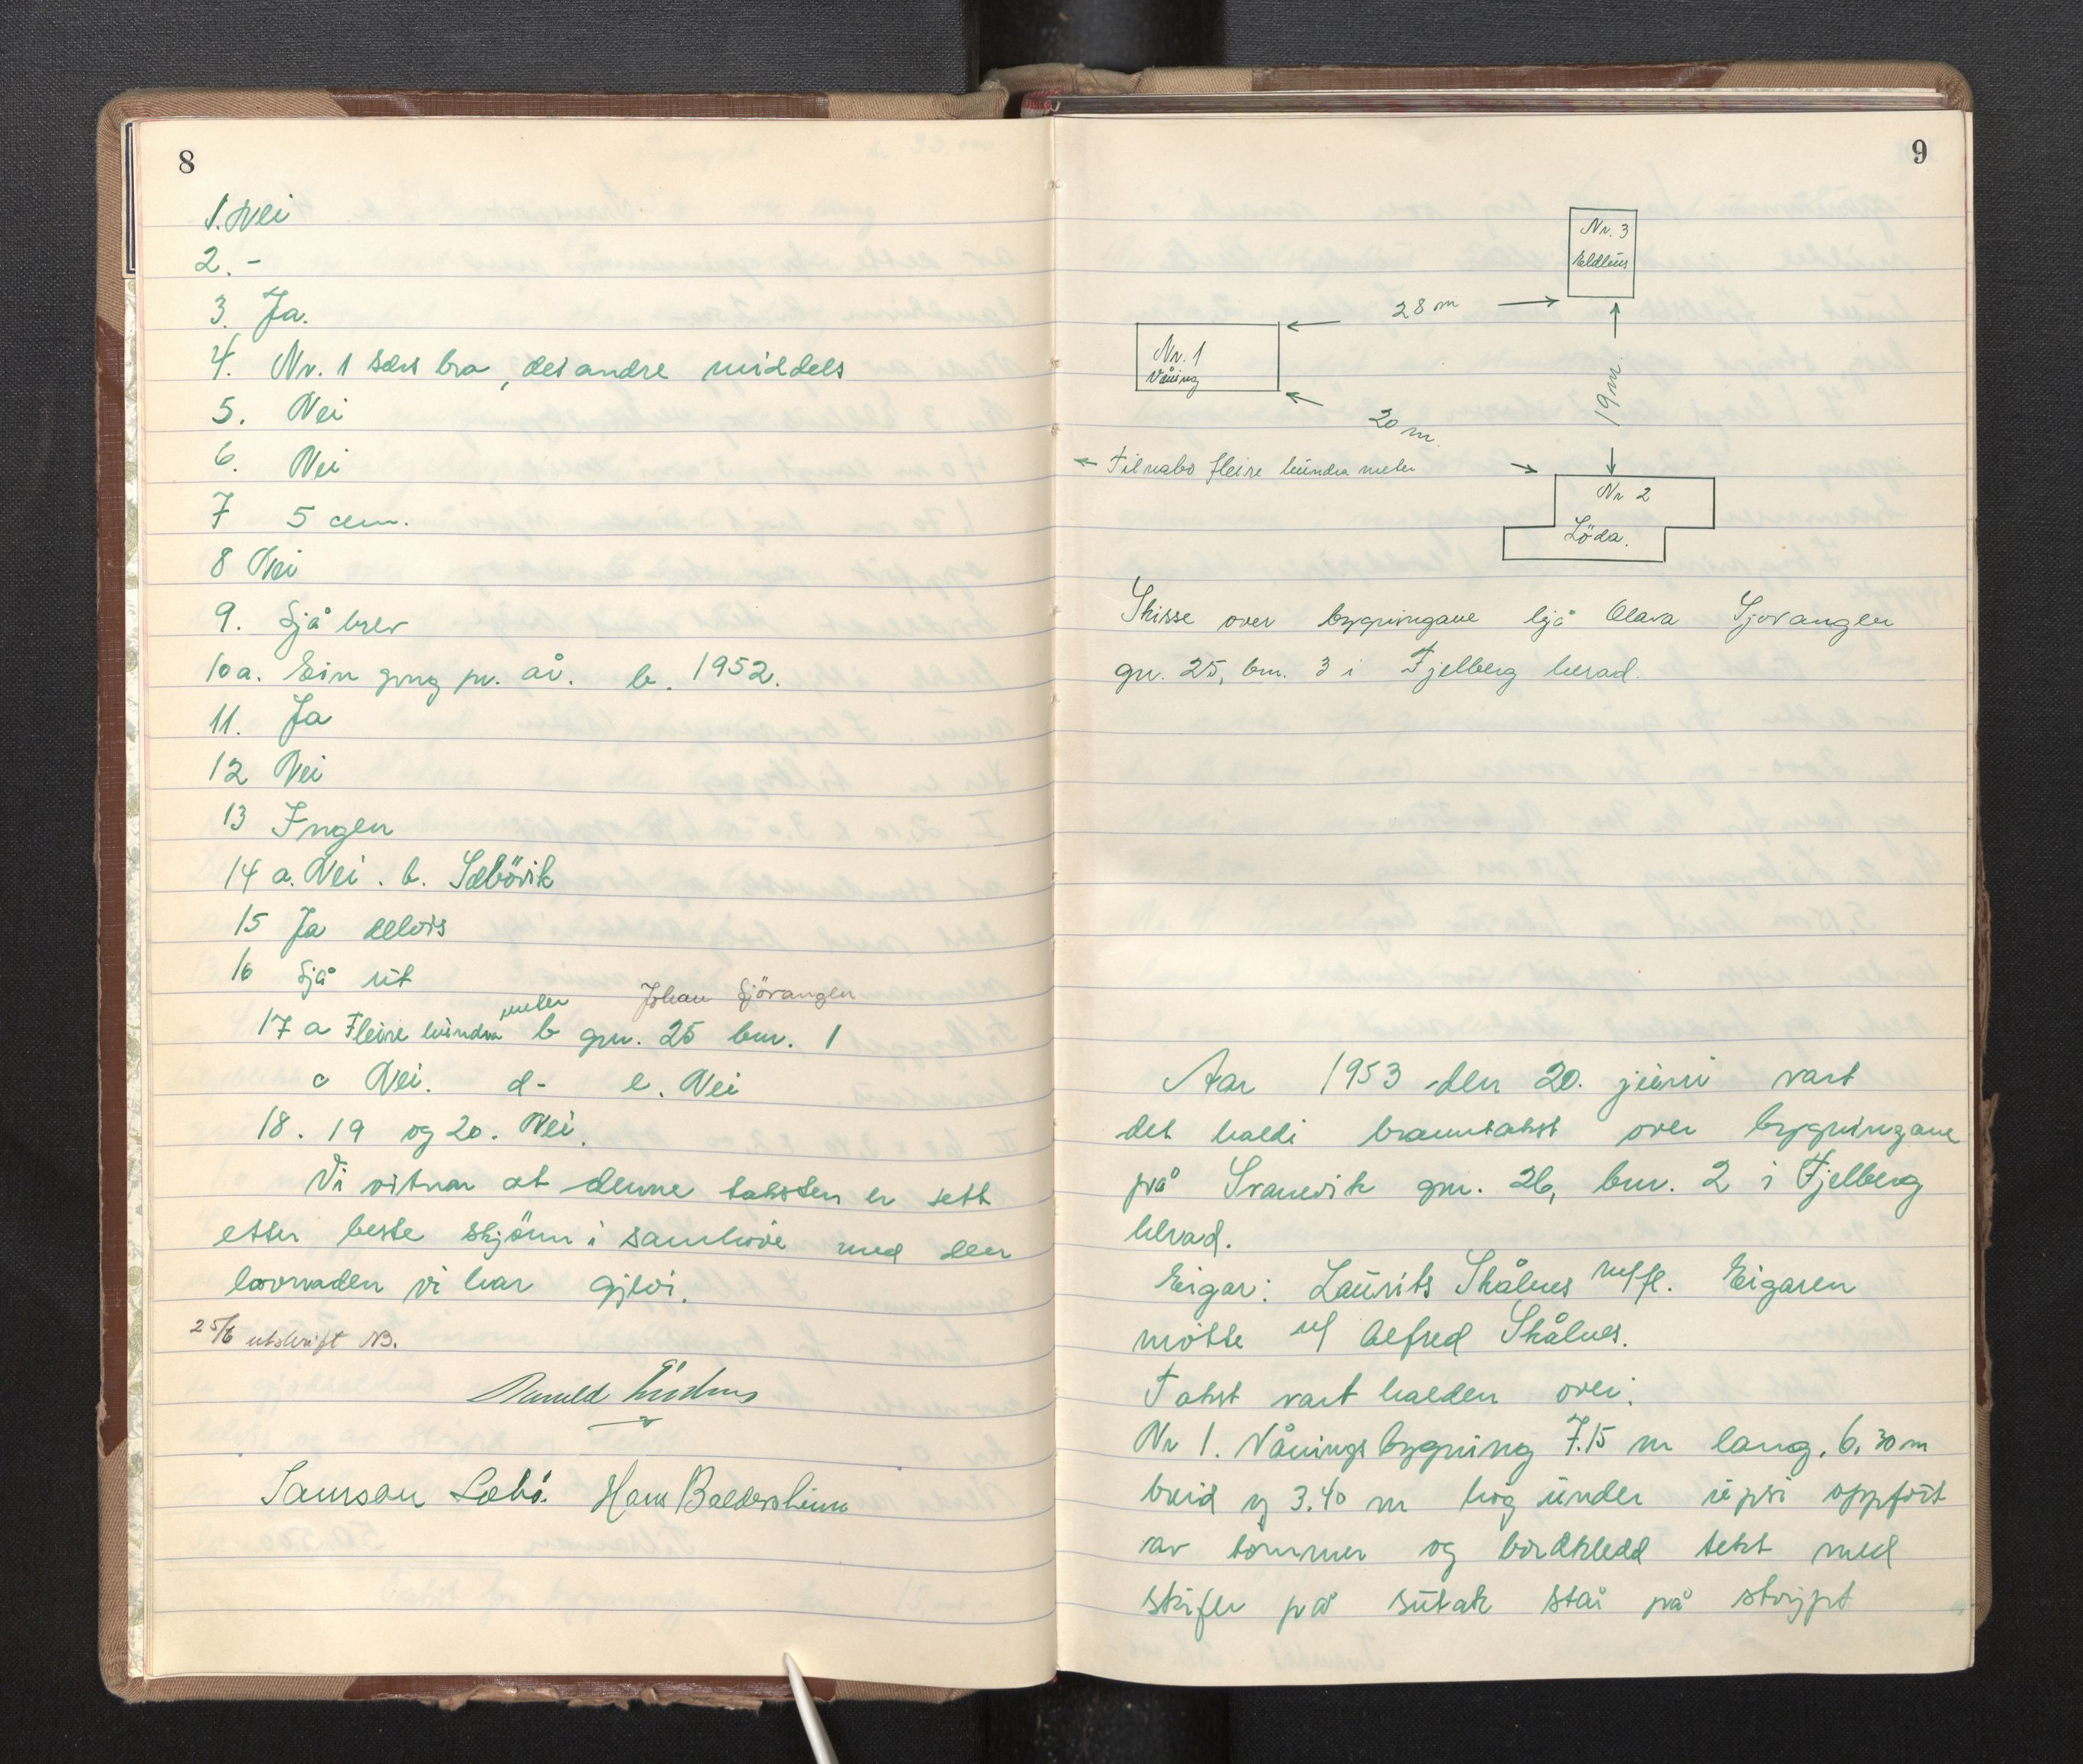 8
1. Nei
2. -
3. Ja.
4. Nr. 1 særs bra, dei andre middels
5. Nei
6. Nei
7 5 cm.
8 Nei
9. Sjå brev
10a. Ein gong pr. år. b. 1952.
11. Ja
12 Nei
13 Ingen
14 a. Nei. b. Sæbövik
15 Ja delvis
16 Sjå rit
meter Johan Sjövangen
17 a Fleire hundra b gnr. 25 bnr. 1
c Nei. d- e. Nei
18. 19 og 20. Nei.
Vi vitnar at denne taksten er sett
etter beste skjönn i samhöve med den
lovnaden vi har gjevi.
25/6 utskrift NB.
Samson Sæbö. Hans Baldersheim
9
Nr. 3
Eldhus
28 m
Nr. 1
Våning
19 m
20 m.
Til nabo fleire hundra meter
Nr 2
Löda.
Skisse over bygningane hjå Olava Sjovangen
gnr. 25, bnr. 3 i Fjelberg herad.
Aar 1953 den 20. juni vart
det haldi branntakst over bygningane
på Svanevik gnr. 26, bnr. 2 i Fjelberg
herad.
Eigar: Laurits Skålnes m/fl. Eigaren
mötte v/ Alfred Skålnes.
Takst vart halden over:
Nr 1. Våningsbygning 7.15 m lang. 6,30 m
breid og 3.40 m hög under upsi oppfört
av tömmer og bordkledd tekt med
skifer på sutak står på stöypt